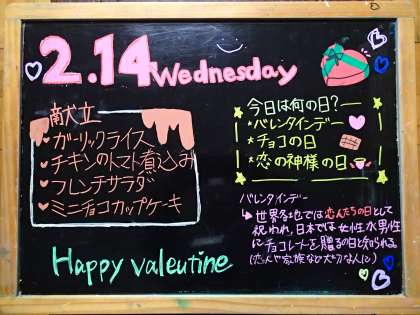 2.14 Wednesday
献立
ガーリックライス
チキンのトマト煮込み
フレンチサラダ
ミニチョコカップケーキ
今日は何の日?
*バレンタインデー
*チョコの日
*恋の神様の日
バレンタインデー
↳世界各地では恋人たちの日として
祝われ,日本では女性→男性
にチョコレートを贈る日と知られる
(恋人や家族など大切な人に)
Happy valeutine